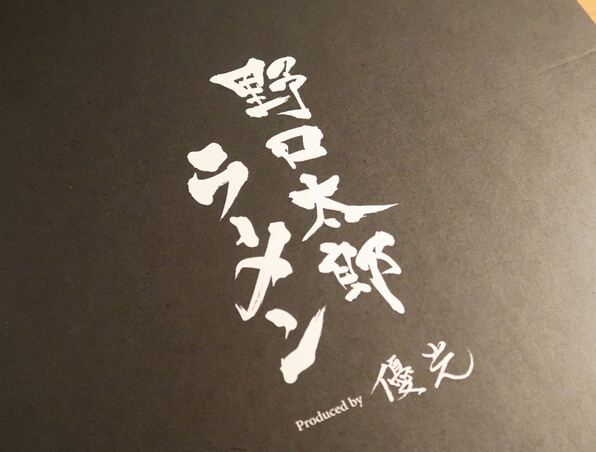 野口太郎
ラーメン
Produced by 優光